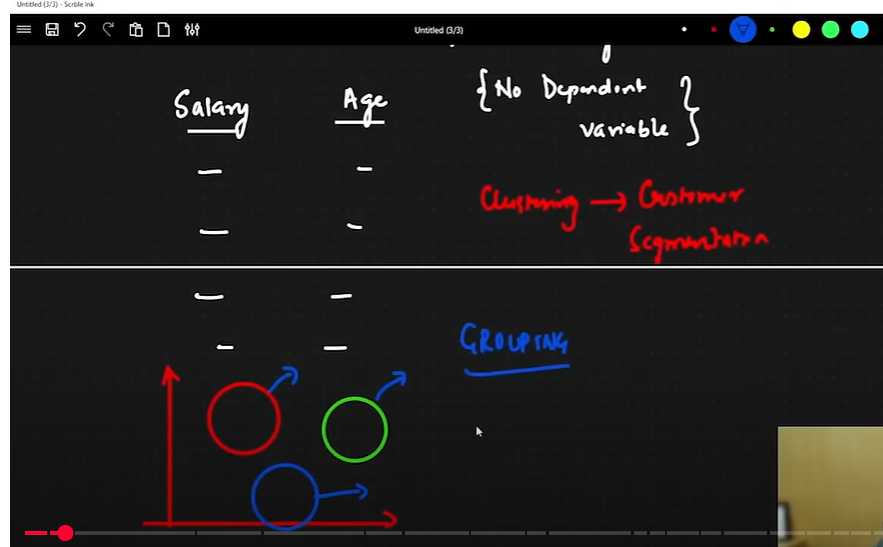 Untitled (3/3) - Scrble Ink
Untitled (3/3)
Salary Age { No Dependent
variable }
Clustering → Customer
Segmentation
GROUPING